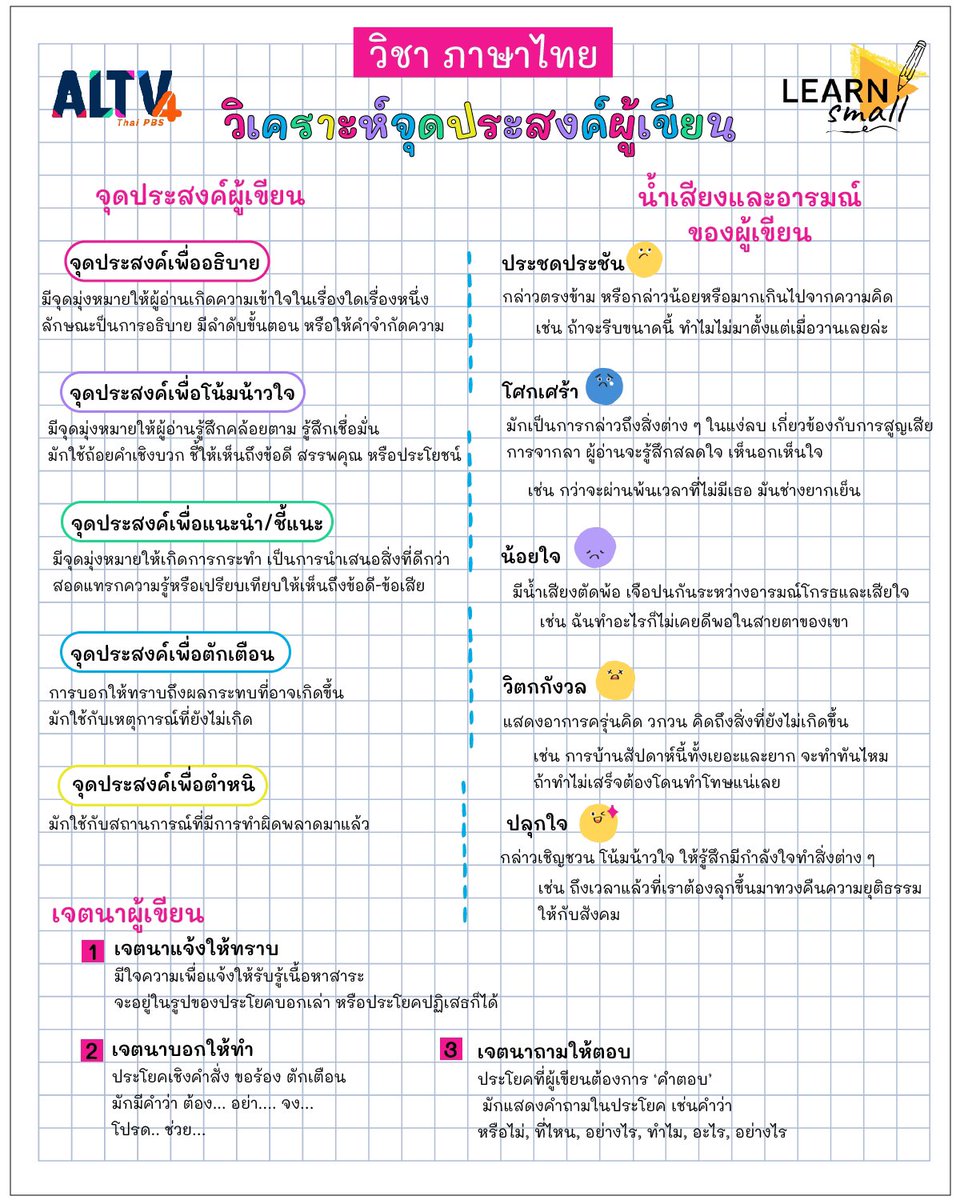 วิชา ภาษาไทย
ALTV4
Thai PBS
วิเคราะห์จุดประสงค์ผู้เขียน
LEARN
small
จุดประสงค์ผู้เขียน
จุดประสงค์เพื่ออธิบาย
มีจุดมุ่งหมายให้ผู้อ่านเกิดความเข้าใจในเรื่องใดเรื่องหนึ่ง
ลักษณะป็นการอธิบาย มีลำดับขั้นตอน หรือให้คำจำกัดความ
จุดประสงค์เพื่อโน้มน้าวใจ
มีจุดมุ่งหมายให้ผู้อ่านรู้สึกคล้อยตาม รู้สึกเชื่อมั่น
มักใช้ถ้อยคำเชิงบวก ชี้ให้เห็นถึงข้อดี สรรพคุณ หรือประโยชน์
จุดประสงค์เพื่อแนะนำ/ชี้แนะ
มีจุดมุ่งหมายให้เกิดการกระทำ เป็นการนำเสนอสิ่งที่ดีกว่า
สอดแทรกความรู้หรือเปรียบเทียบให้เห็นถึงข้อดี-ข้อเสีย
จุดประสงค์เพื่อตักเตือน
การบอกให้ทราบถึงผลกระทบที่อาจเกิดขึ้น
มักใช้กับเหตุการณ์ที่ยังไม่เกิด
จุดประสงค์เพื่อตำหนิ
มักใช้กับสถานการณ์ที่มีการทำผิดพลาดมาแล้ว
น้ำเสียงและอารมณ์
ของผู้เขียน
ประชดประชัน
กล่าวตรงข้าม หรือกล่าวน้อยหรือมากเกินไปจากความคิด
เช่น ถ้าจะรีบขนาดนี้ ทำไมไม่มาตั้งแต่เมื่อวานเลยล่ะ
โศกเศร้า
มักเป็นการกล่าวถึงสิ่งต่าง ๆ ในแง่ลบ เกี่ยวข้องกับการสูญเสีย
การจากลา ผู้อ่านจะรู้สึกสลดใจ เห็นอกเห็นใจ
เช่น กว่าจะผ่านพ้นเวลาที่ไม่มีเธอ มันช่างยากเย็น
น้อยใจ
มีน้ำเสียงตัดพ้อ เจือปนกันระหว่างอารมณ์โกรธและเสียใจ
เช่น ฉันทำอะไรก็ไม่เคยดีพอในสายตาของเขา
วิตกกังวล
แสดงอาการครุ่นคิด วกวน คิดถึงสิ่งที่ยังไม่เกิดขึ้น
เช่น การบ้านสัปดาห์นี้ทั้งเยอะและยาก จะทำทันไหม
ถ้าทำไม่เสร็จต้องโดนทำโทษแน่เลย
ปลุกใจ
กล่าวเชิญชวน โน้มน้าวใจ ให้รู้สึกมีกำลังใจทำสิ่งต่าง ๆ
เช่น ถึงเวลาแล้วที่เราต้องลุกขึ้นมาทวงคืนความยุติธรรม
ให้กับสังคม
เจตนาผู้เขียน
1 เจตนาแจ้งให้ทราบ
มีใจความเพื่อแจ้งให้รับรู้เนื้อหาสาระ
จะอยู่ในรูปของประโยคบอกเล่า หรือประโยคปฏิเสธก็ได้
2 เจตนาบอกให้ทำ
ประโยคเชิงคำสั่ง ขอร้อง ตักเตือน
มักมีคำว่า ต้อง... อย่า.... จง...
โปรด.. ช่วย...
3 เจตนาถามให้ตอบ
ประโยคที่ผู้เขียนต้องการ ‘คำตอบ’
มักแสดงคำถามในประโยค เช่นคำว่า
หรือไม่, ที่ไหน, อย่างไร, ทำไม, อะไร, อย่างไร